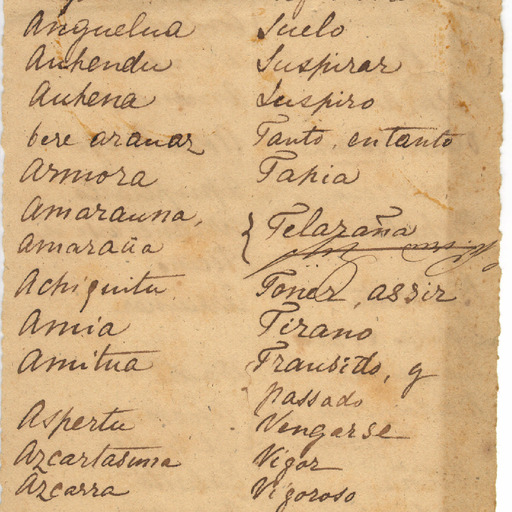 Anguelua Suelo
Auhendu Suspirar
Auhena Suspiro
bere arauaz Tanto, entanto
Armora Tapia
Amarauna, { Telaraña
Amaraũa
Achiquitu Toner, assir
Amia Tirano
Amitua Transido, q
passado
Aspertu Vengarse
Azcartasuna Vigor
Azcarra Vigoroso